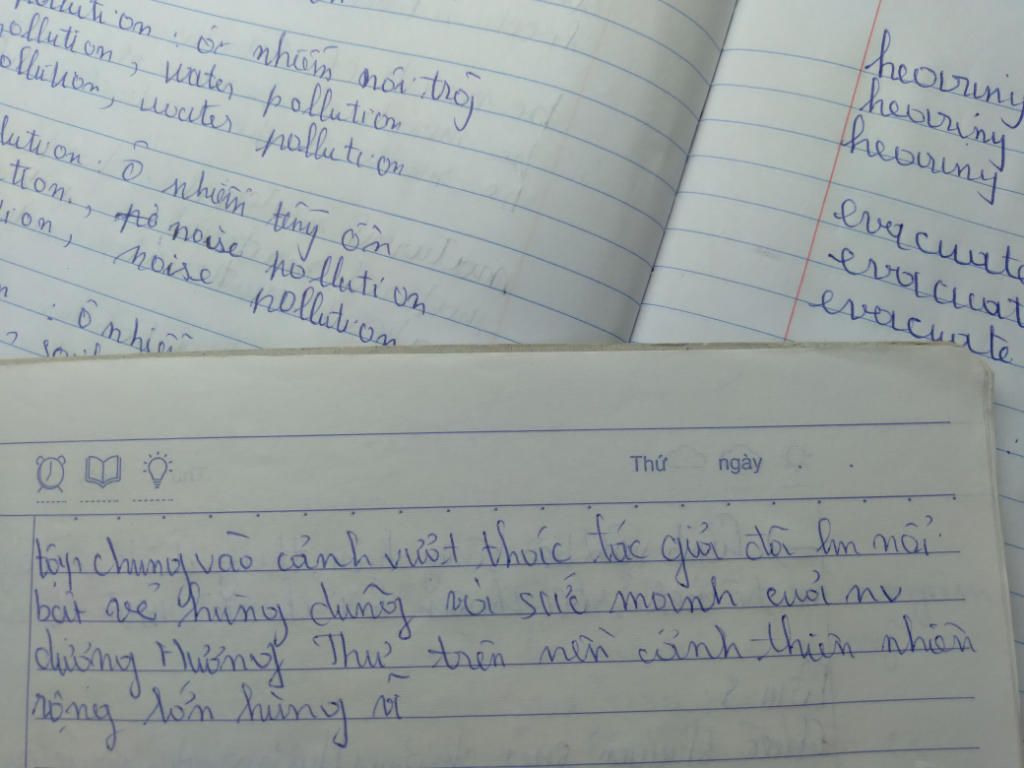 pollution : ô nhiễm nói trộ
pollution, water pollution
pollution, water pollution
lution : Ô nhiễm tiếng ồn
tion, noise pollution
tion, noise pollution
: Ô nhiễ
hearing
hearing
hearing
evacuate
evacuat
evacuate
Thứ ngày
tập chung vào cảnh vượt thoíc tác giả đã lm nổi
bật vẻ hùng dũng và sức mạnh cuởi nv
dướng Hướng Thư trên nền cảnh thiên nhiên
rộng lớn hùng vĩ